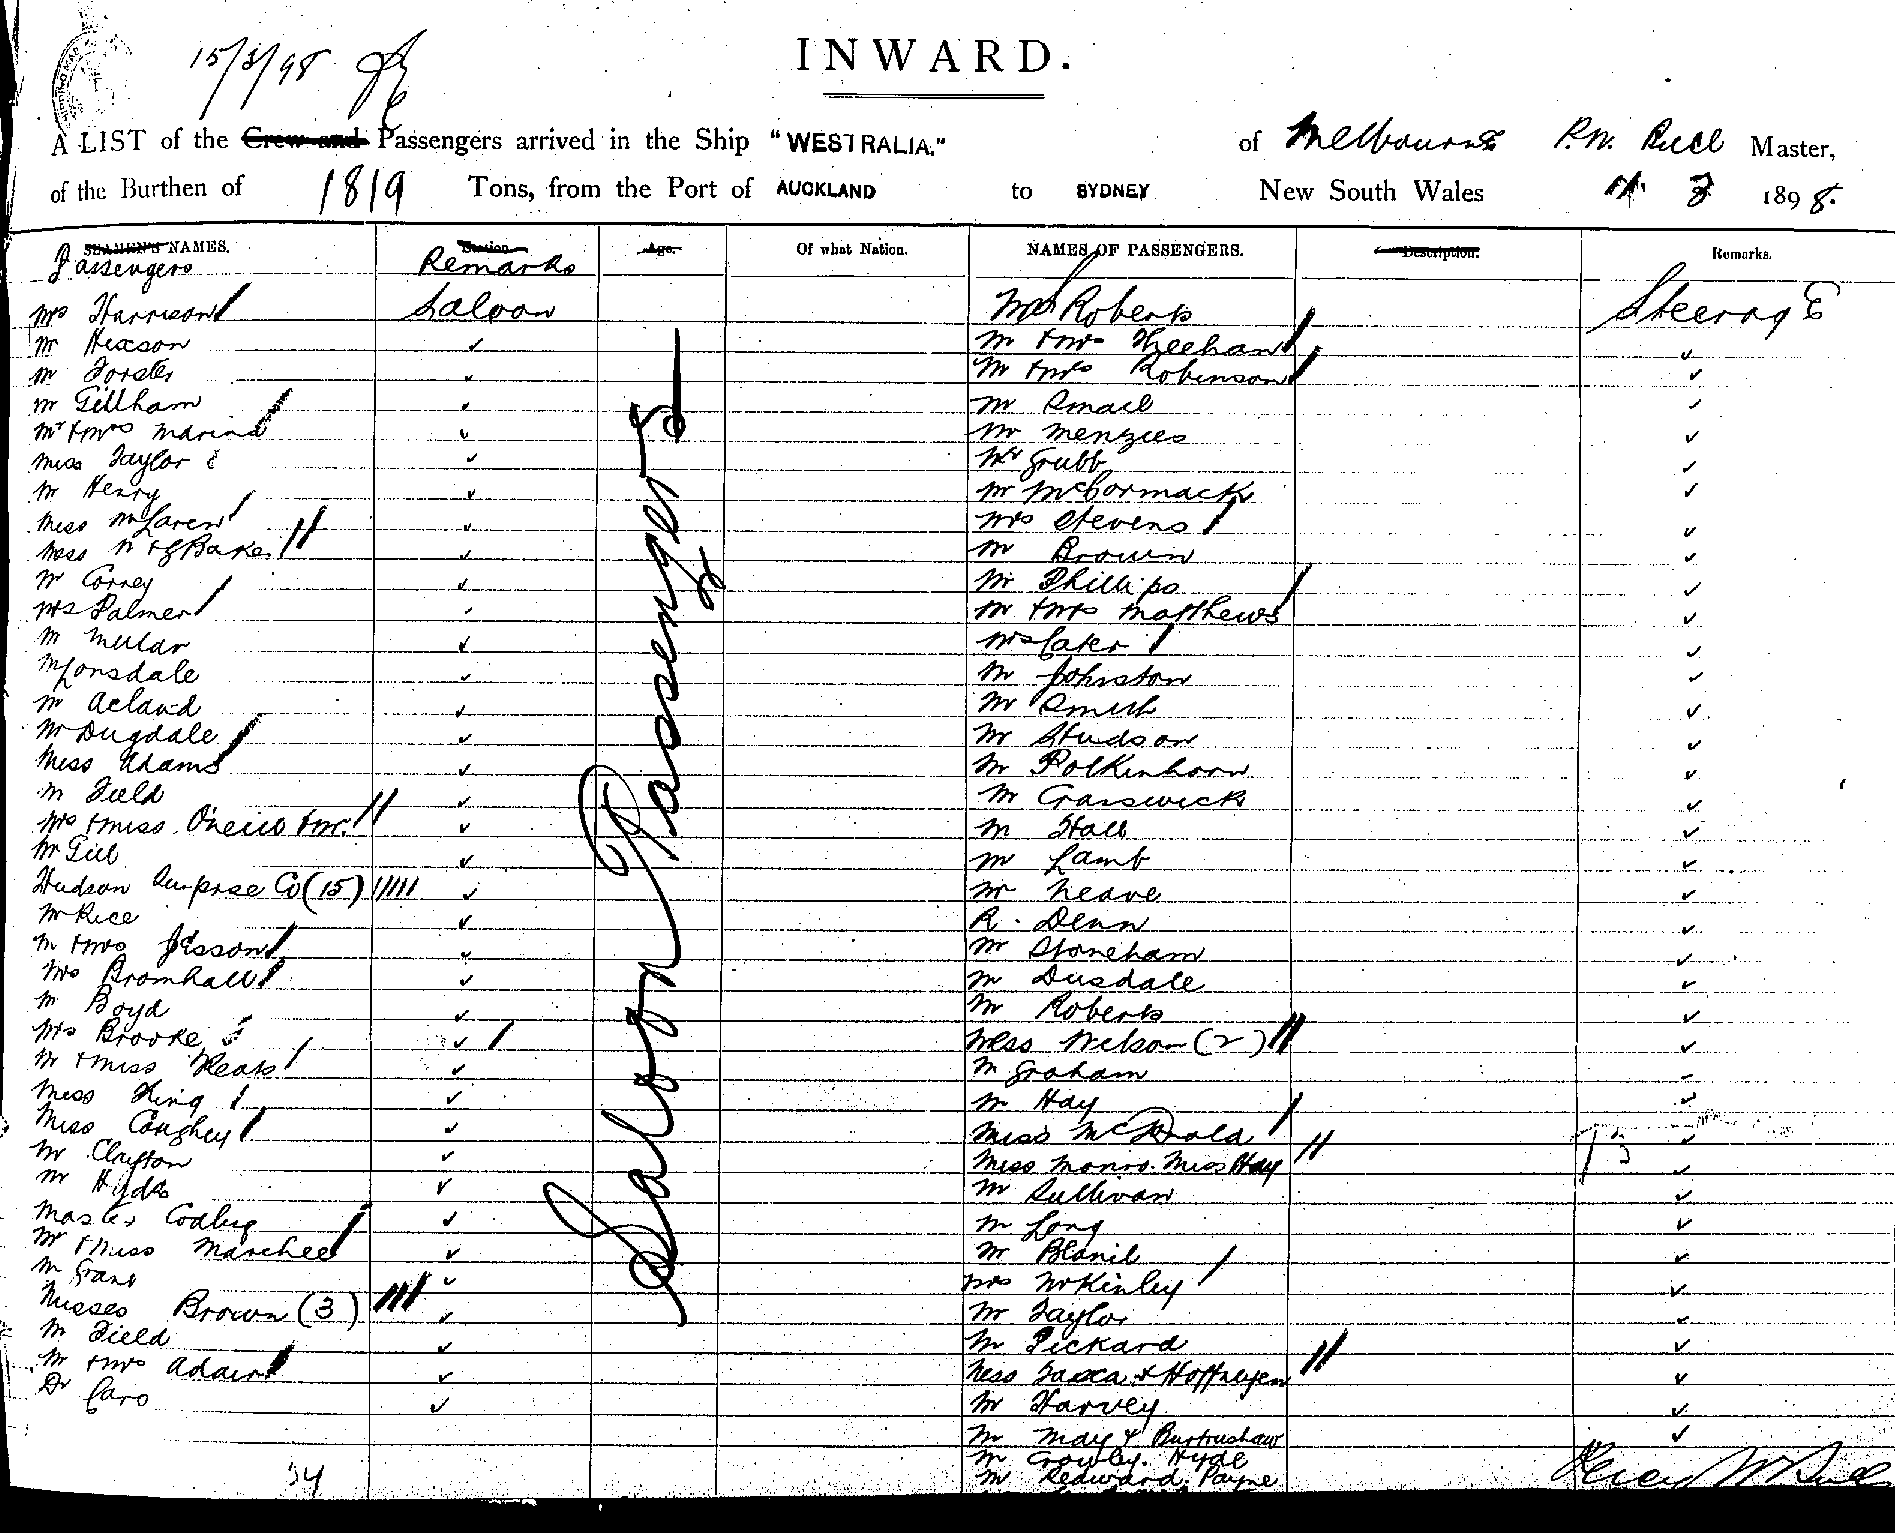 15/3/98
INWARD.
A LIST of the Crew and Passengers arrived in the Ship "WESTRALIA." of Melbourne P.W. Bull Master,
of the Burthen of 1819 Tons, from the Port of AUCKLAND to SYDNEY New South Wales 11. 3 1898.
SEAMEN'S NAMES. Station. Age. Of what Nation. NAMES OF PASSENGERS. Description. Remarks.
Passengers Remarks
Mrs Harrison Saloon
Mr Hixson
Mr Forster
Mr Gillham
Mr & Mrs
Miss Taylor
Mr Henry
Miss McLaren
Miss
Mr Correy
Mrs Palmer
Mr Millar
Mr Lonsdale
Mr Acland
Mr Dugdale
Miss Adams
Mr Field
Mrs & Miss
Mr Gill
Hudson Surprise Co (15)
Mr Rice
Mr & Mrs Jesson
Mrs Bromhall
Mr Boyd
Mrs Brooke
Mr & Miss
Miss King
Miss Caughey
Mr Clayton
Mr Hyde
Master
Mr & Miss
Mr Grant
Misses Brown (3)
Mr Field
Mr & Mrs Adair
Dr Caro
34
Saloon Passengers
Roberts Steerage
Mr & Mrs Sheehan
Mr & Mrs Robinson
Mr Smail
Mr Menzies
Mr Grubb
Mr McCormack
Mrs Stevens
Mr Brown
Mr Phillips
Mr & Mrs Matthews
Mrs Cater
Mr Johnston
Mr Smith
Mr Hudson
Mr Polkinhorn
Mr Crasswick
Mr Hall
Mr Lamb
Mr Neave
R. Denn
Mr Stoneham
Mr Dusdale
Mr Roberts
Miss Wilson (2)
Mr Graham
Mr Hay
Miss
Miss Monro. Miss Hay
Mr Sullivan
Mr Long
Mr
Mrs McKinley
Mr Taylor
Mr Pickard
Miss
Mr Harvey
Mr May &
Mr Crowley. Hyde
Mr Redward. Payne
73